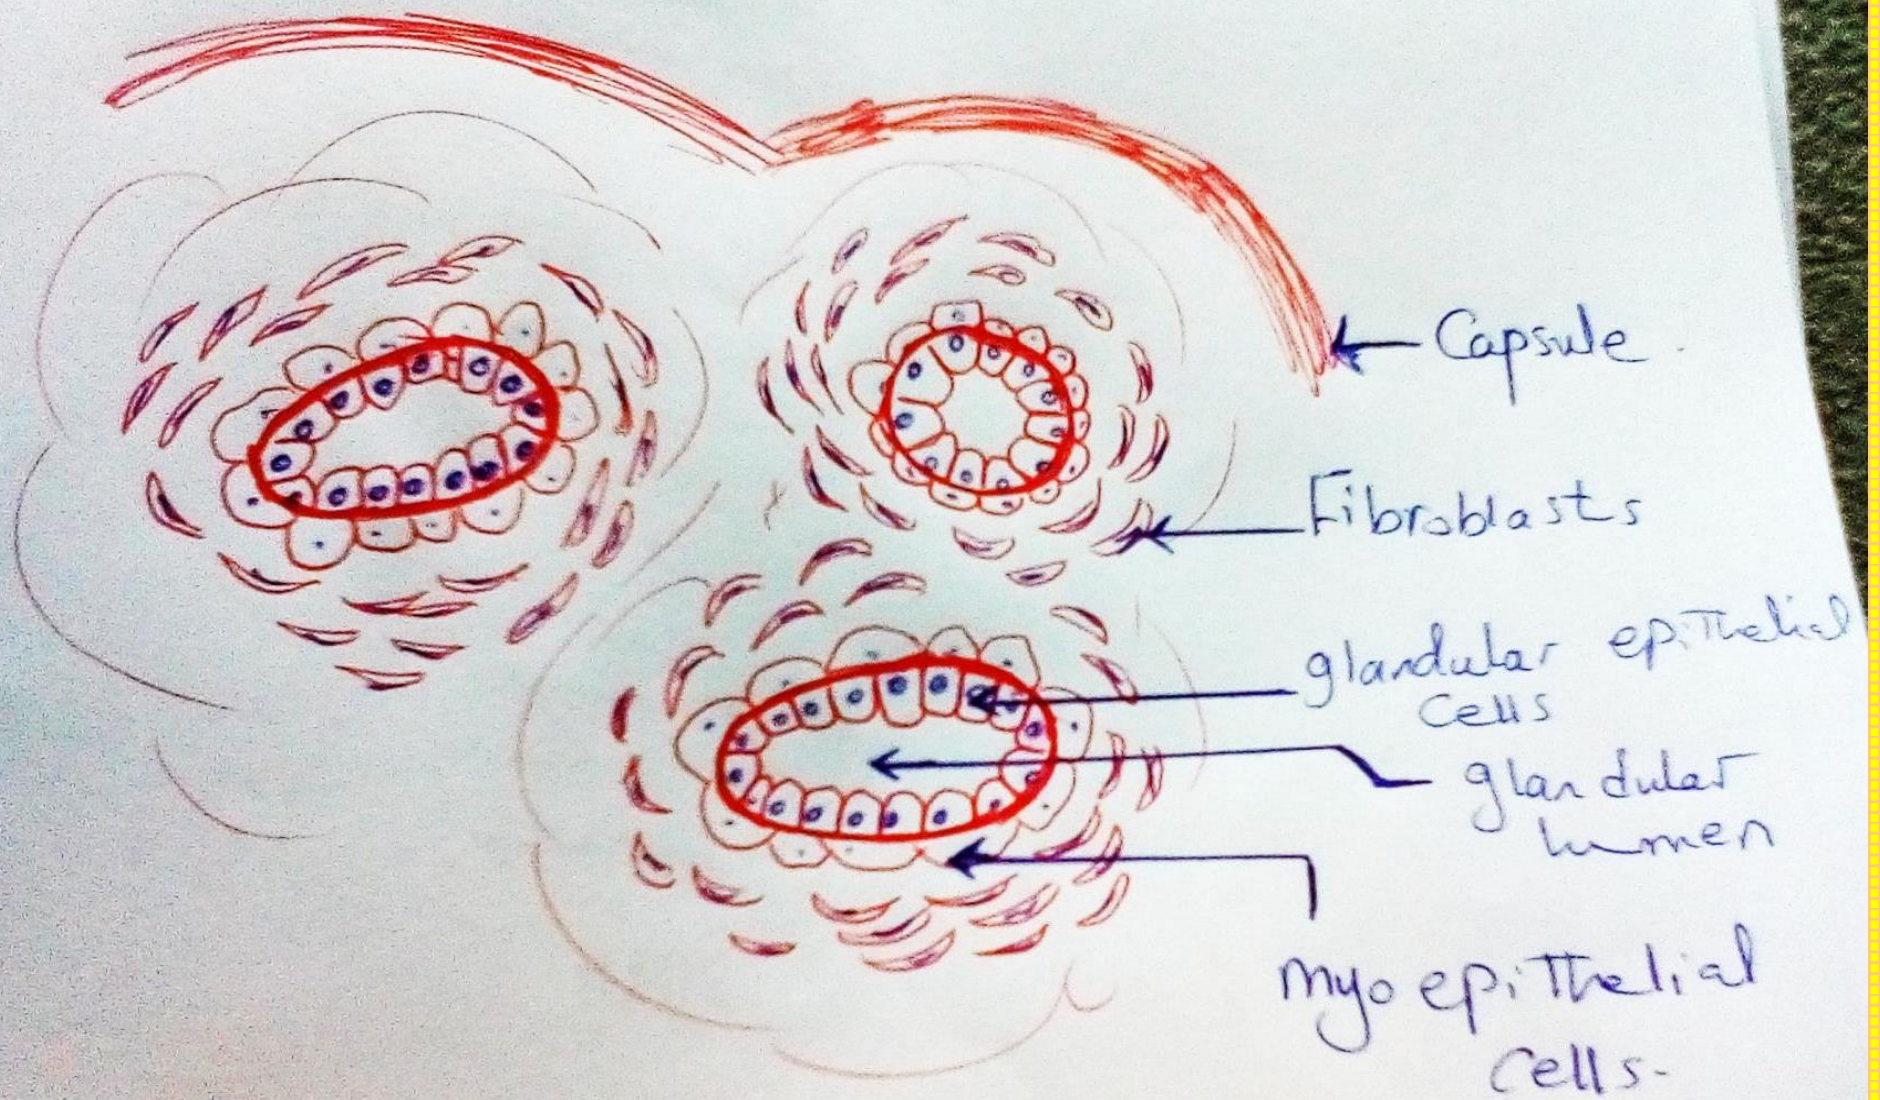 Capsule.
Fibroblasts
glandular epithelial
cells
glandular
lumen
myoepithelial
cells.